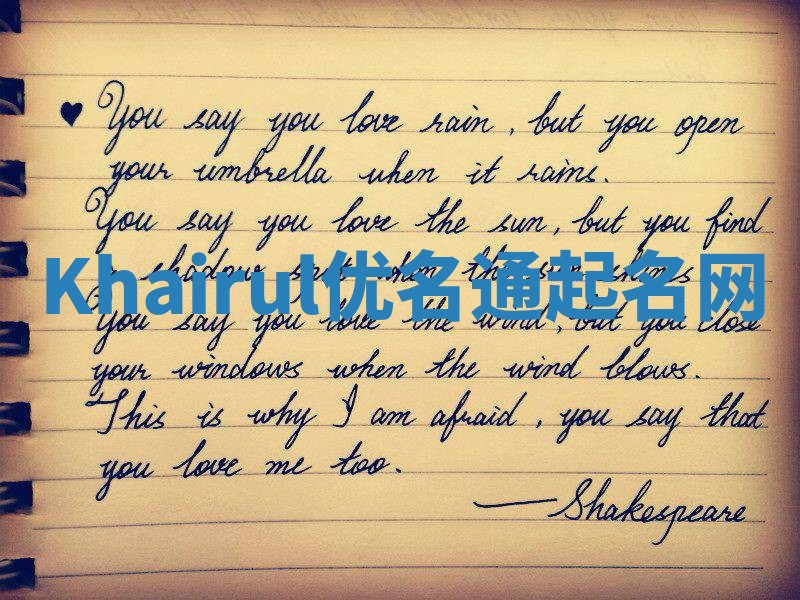 ♥ You say you love rain, but you open
your umbrella when it rains.
You say you love the sun, but you find
a shadow spot when the sun shines
Khairul优名通起名网
You say you love the wind, but you close
your windows when the wind blows.
This is why I am afraid, you say that
you love me too.
—Shakespeare